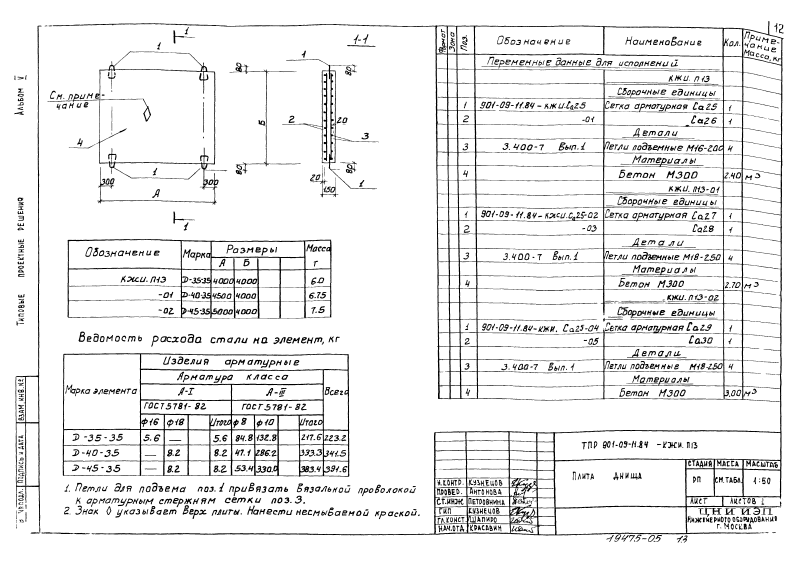 12
Альбом IV
Типовые проектные решения
Взам. инв. №
Подпись и дата
1
1
1
См. приме-
чание
4
80
80
300
300
А
Б
1
1-1
1
80
20
2
3
80
20
150
1
Обозначение Марка Размеры Масса
А Б т
КЖИ.П13 D-35-35 4000 4000 6.0
-01 D-40-35 4500 4000 6.75
-02 D-45-35 5000 4000 7.5
Ведомость расхода стали на элемент, кг
Марка элемента Изделия арматурные Всего
Арматура класса
А-I А-III
ГОСТ 5781-82 ГОСТ 5781-82
ф16 ф18 Итого ф8 ф10 Итого
D-35-35 5.6 — 5.6 84.8 132.8 217.6 223.2
D-40-35 — 8.2 8.2 47.1 286.2 333.3 341.5
D-45-35 — 8.2 8.2 53.4 330.0 383.4 391.6
1. Петли для подъема поз. 1 привязать вязальной проволокой
к арматурным стержням сетки поз. 3.
2. Знак ◊ указывает верх плиты. Нанести несмываемой краской.
Формат Зона Поз. Обозначение Наименование Кол. Приме-
чание
Масса, кг
Переменные данные для исполнений
КЖИ.П13
Сборочные единицы
1 901-09-11.84-КЖИ.Са25 Сетка арматурная Са25 1
2 -01 Са26 1
Детали
3 3.400-7 Вып.1 Петли подъемные М16-200 4
Материалы
4 Бетон М300 2.40 м3
КЖИ.П13-01
Сборочные единицы
1 901-09-11.84-КЖИ.Са25-02 Сетка арматурная Са27 1
2 -03 Са28 1
Детали
3 3.400-7 Вып.1 Петли подъемные М18-250 4
Материалы
4 Бетон М300 2.70 м3
КЖИ.П13-02
Сборочные единицы
1 901-09-11.84-КЖИ.Са25-04 Сетка арматурная Са29 1
2 -05 Са30 1
Детали
3 3.400-7 Вып.1 Петли подъемные М18-250 4
Материалы
4 Бетон М300 3,00 м3
ТПР 901-09-11.84 -КЖИ.П13
Н.контр. Кузнецов
Провер. Антонова
Ст.инж. Петровнина
ГИП Кузнецов
Гл.конст. Шапиро
Нач.отд. Красавин
Плита днища
Стадия Масса Масштаб
РП См.табл. 1:50
Лист Листов 1
ЦНИИЭП
Инженерного оборудования
г. Москва
19475-05 13